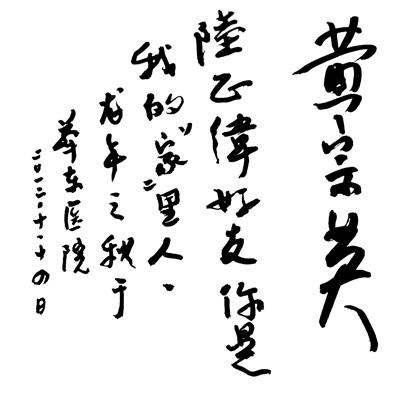 黄宗英
陸正偉好友你是
我的“家”里人、
龙年之秋于
华东医院
二〇一二·十一·十四日